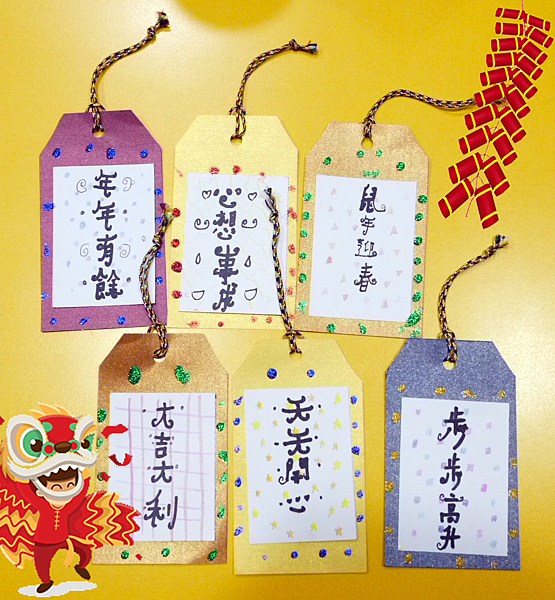 年年有餘
心想事成
鼠年迎春
大吉大利
天天開心
步步高升